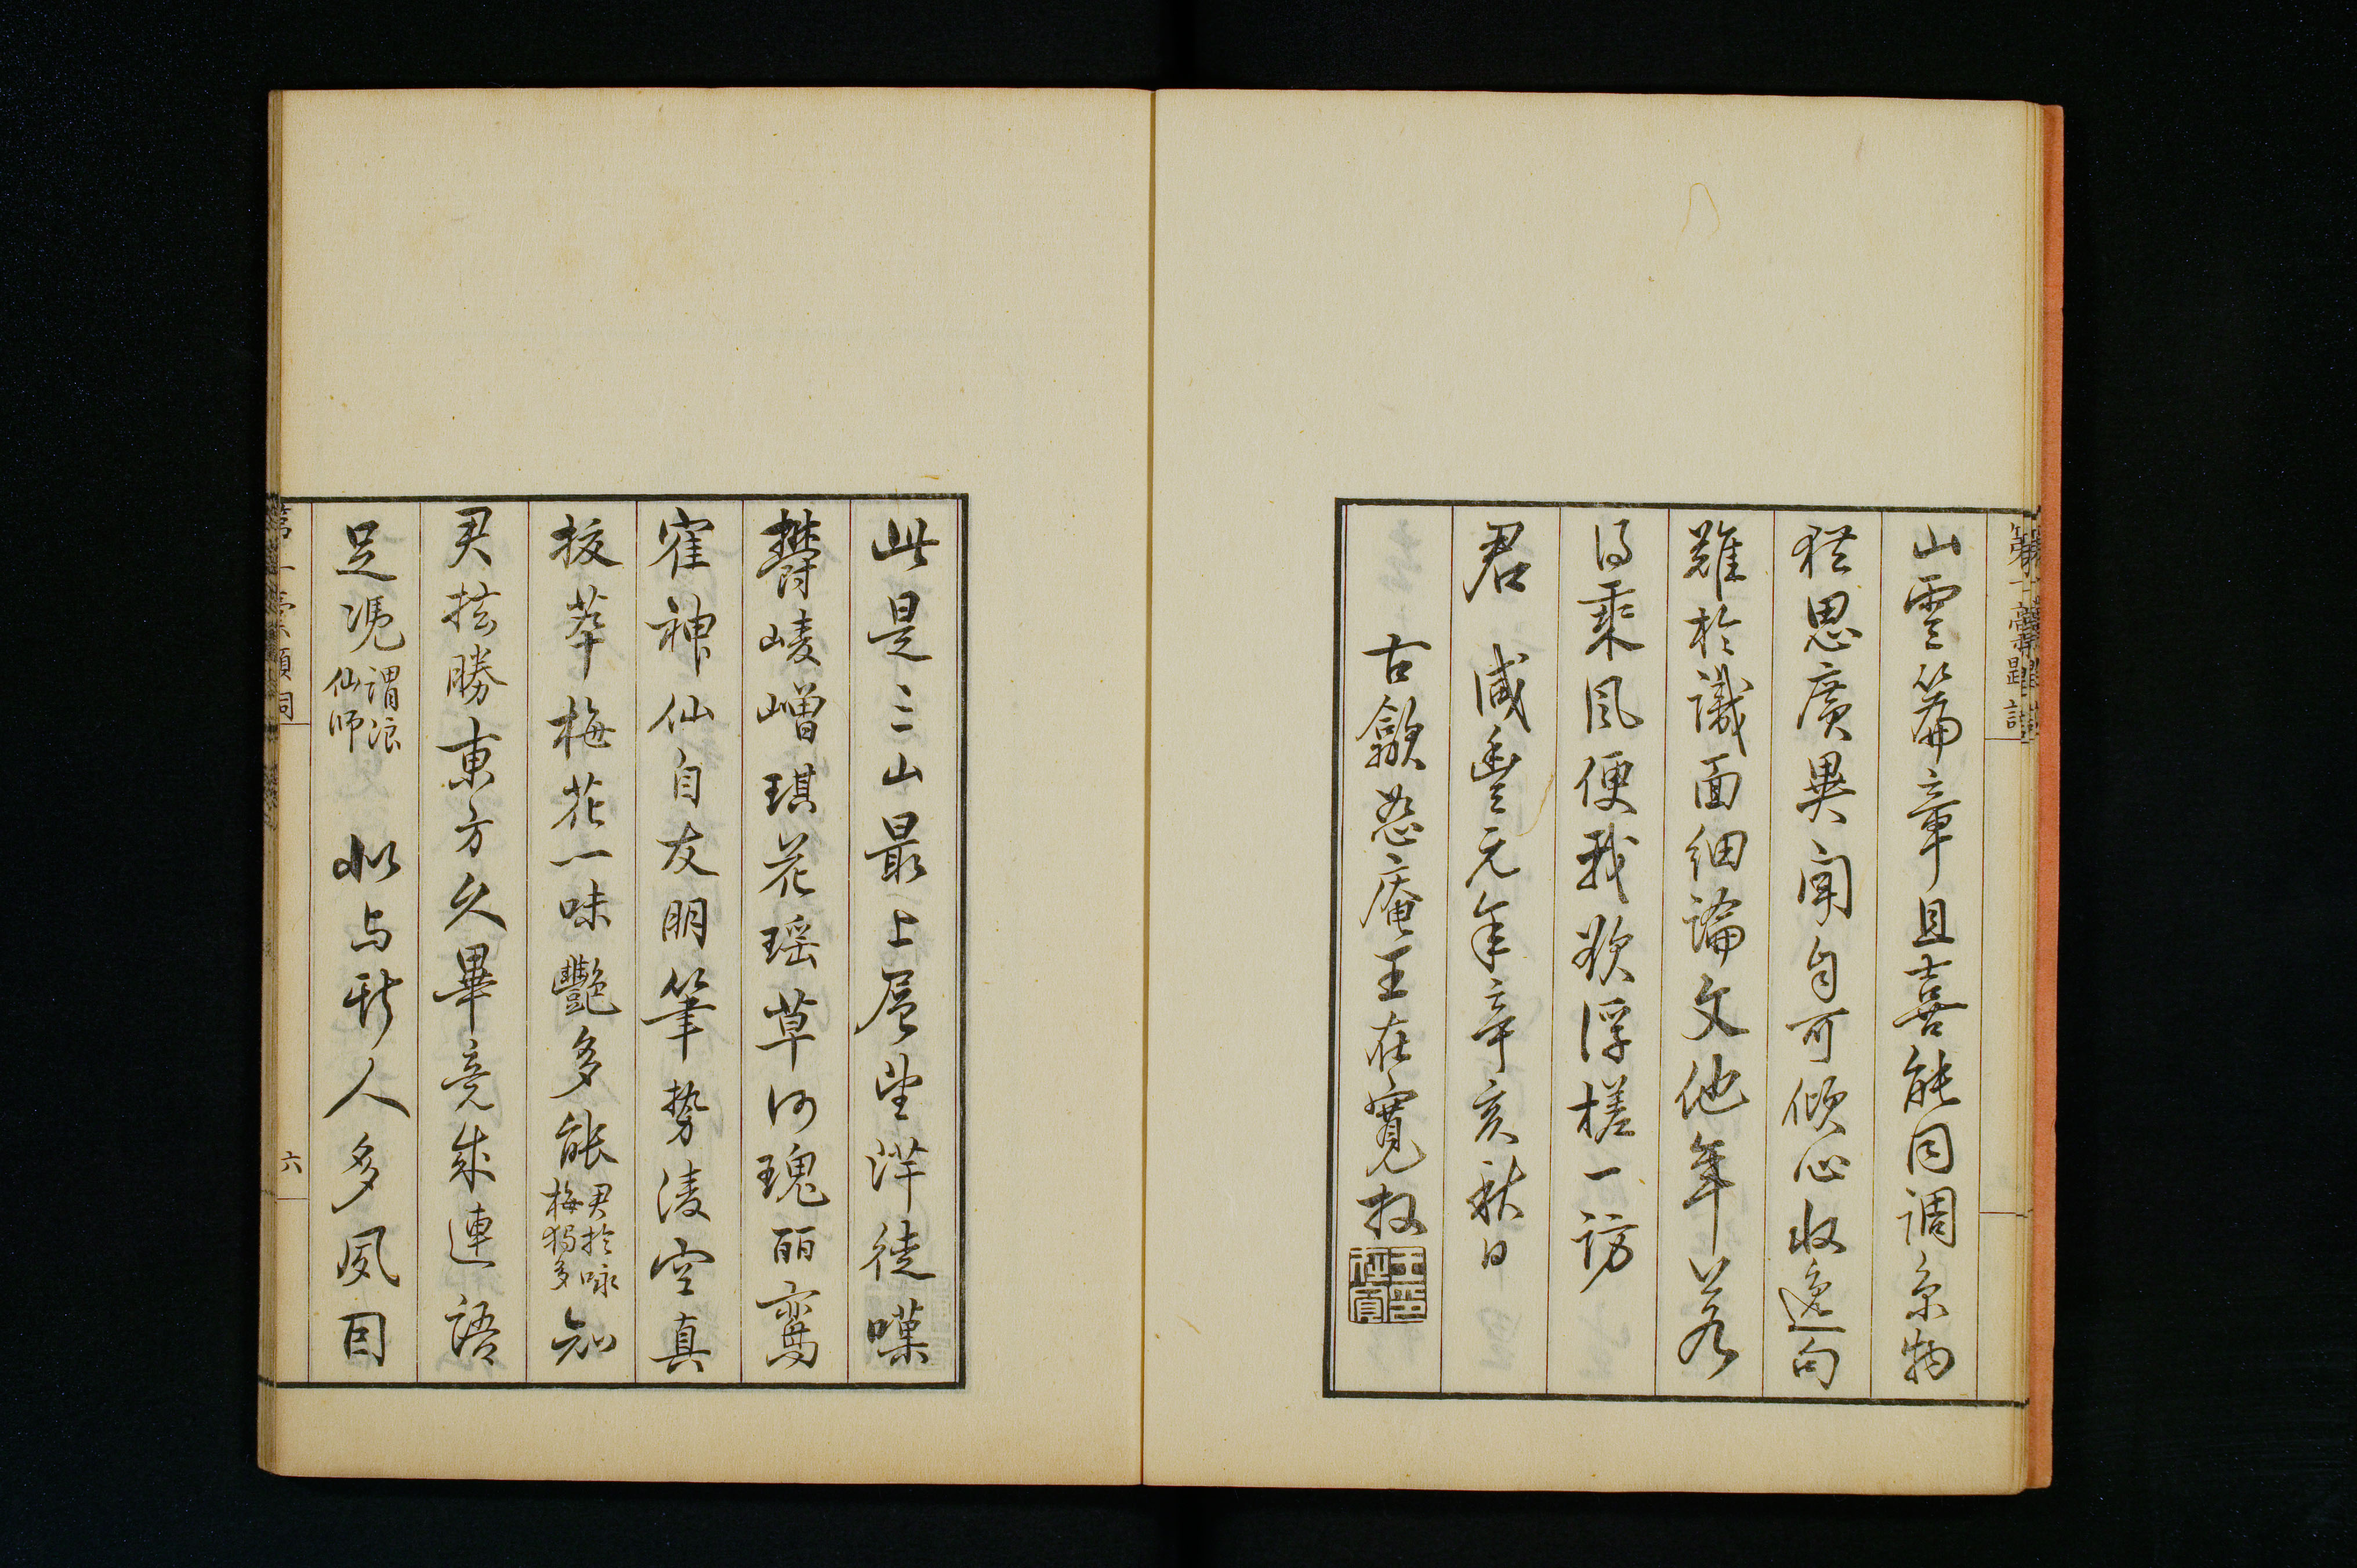 山雲篇章且喜能同調景物
猶思廣異聞自可傾心收逸句
難於識面細論文他年若
得乘風便我欲浮槎一訪
君　咸豐元年辛亥秋日
古歙恕庵王在寬拔
此是三山最上層望洋徒嘆
鬱崚嶒琪花瑤草何瑰丽鸞
寉神仙自友朋筆勢凌空真
拔萃梅花一味艷多能君於咏梅獨多知
君抗勝東方久畢竟成連語
足凴謂浪仙師　似与形人多夙因
六